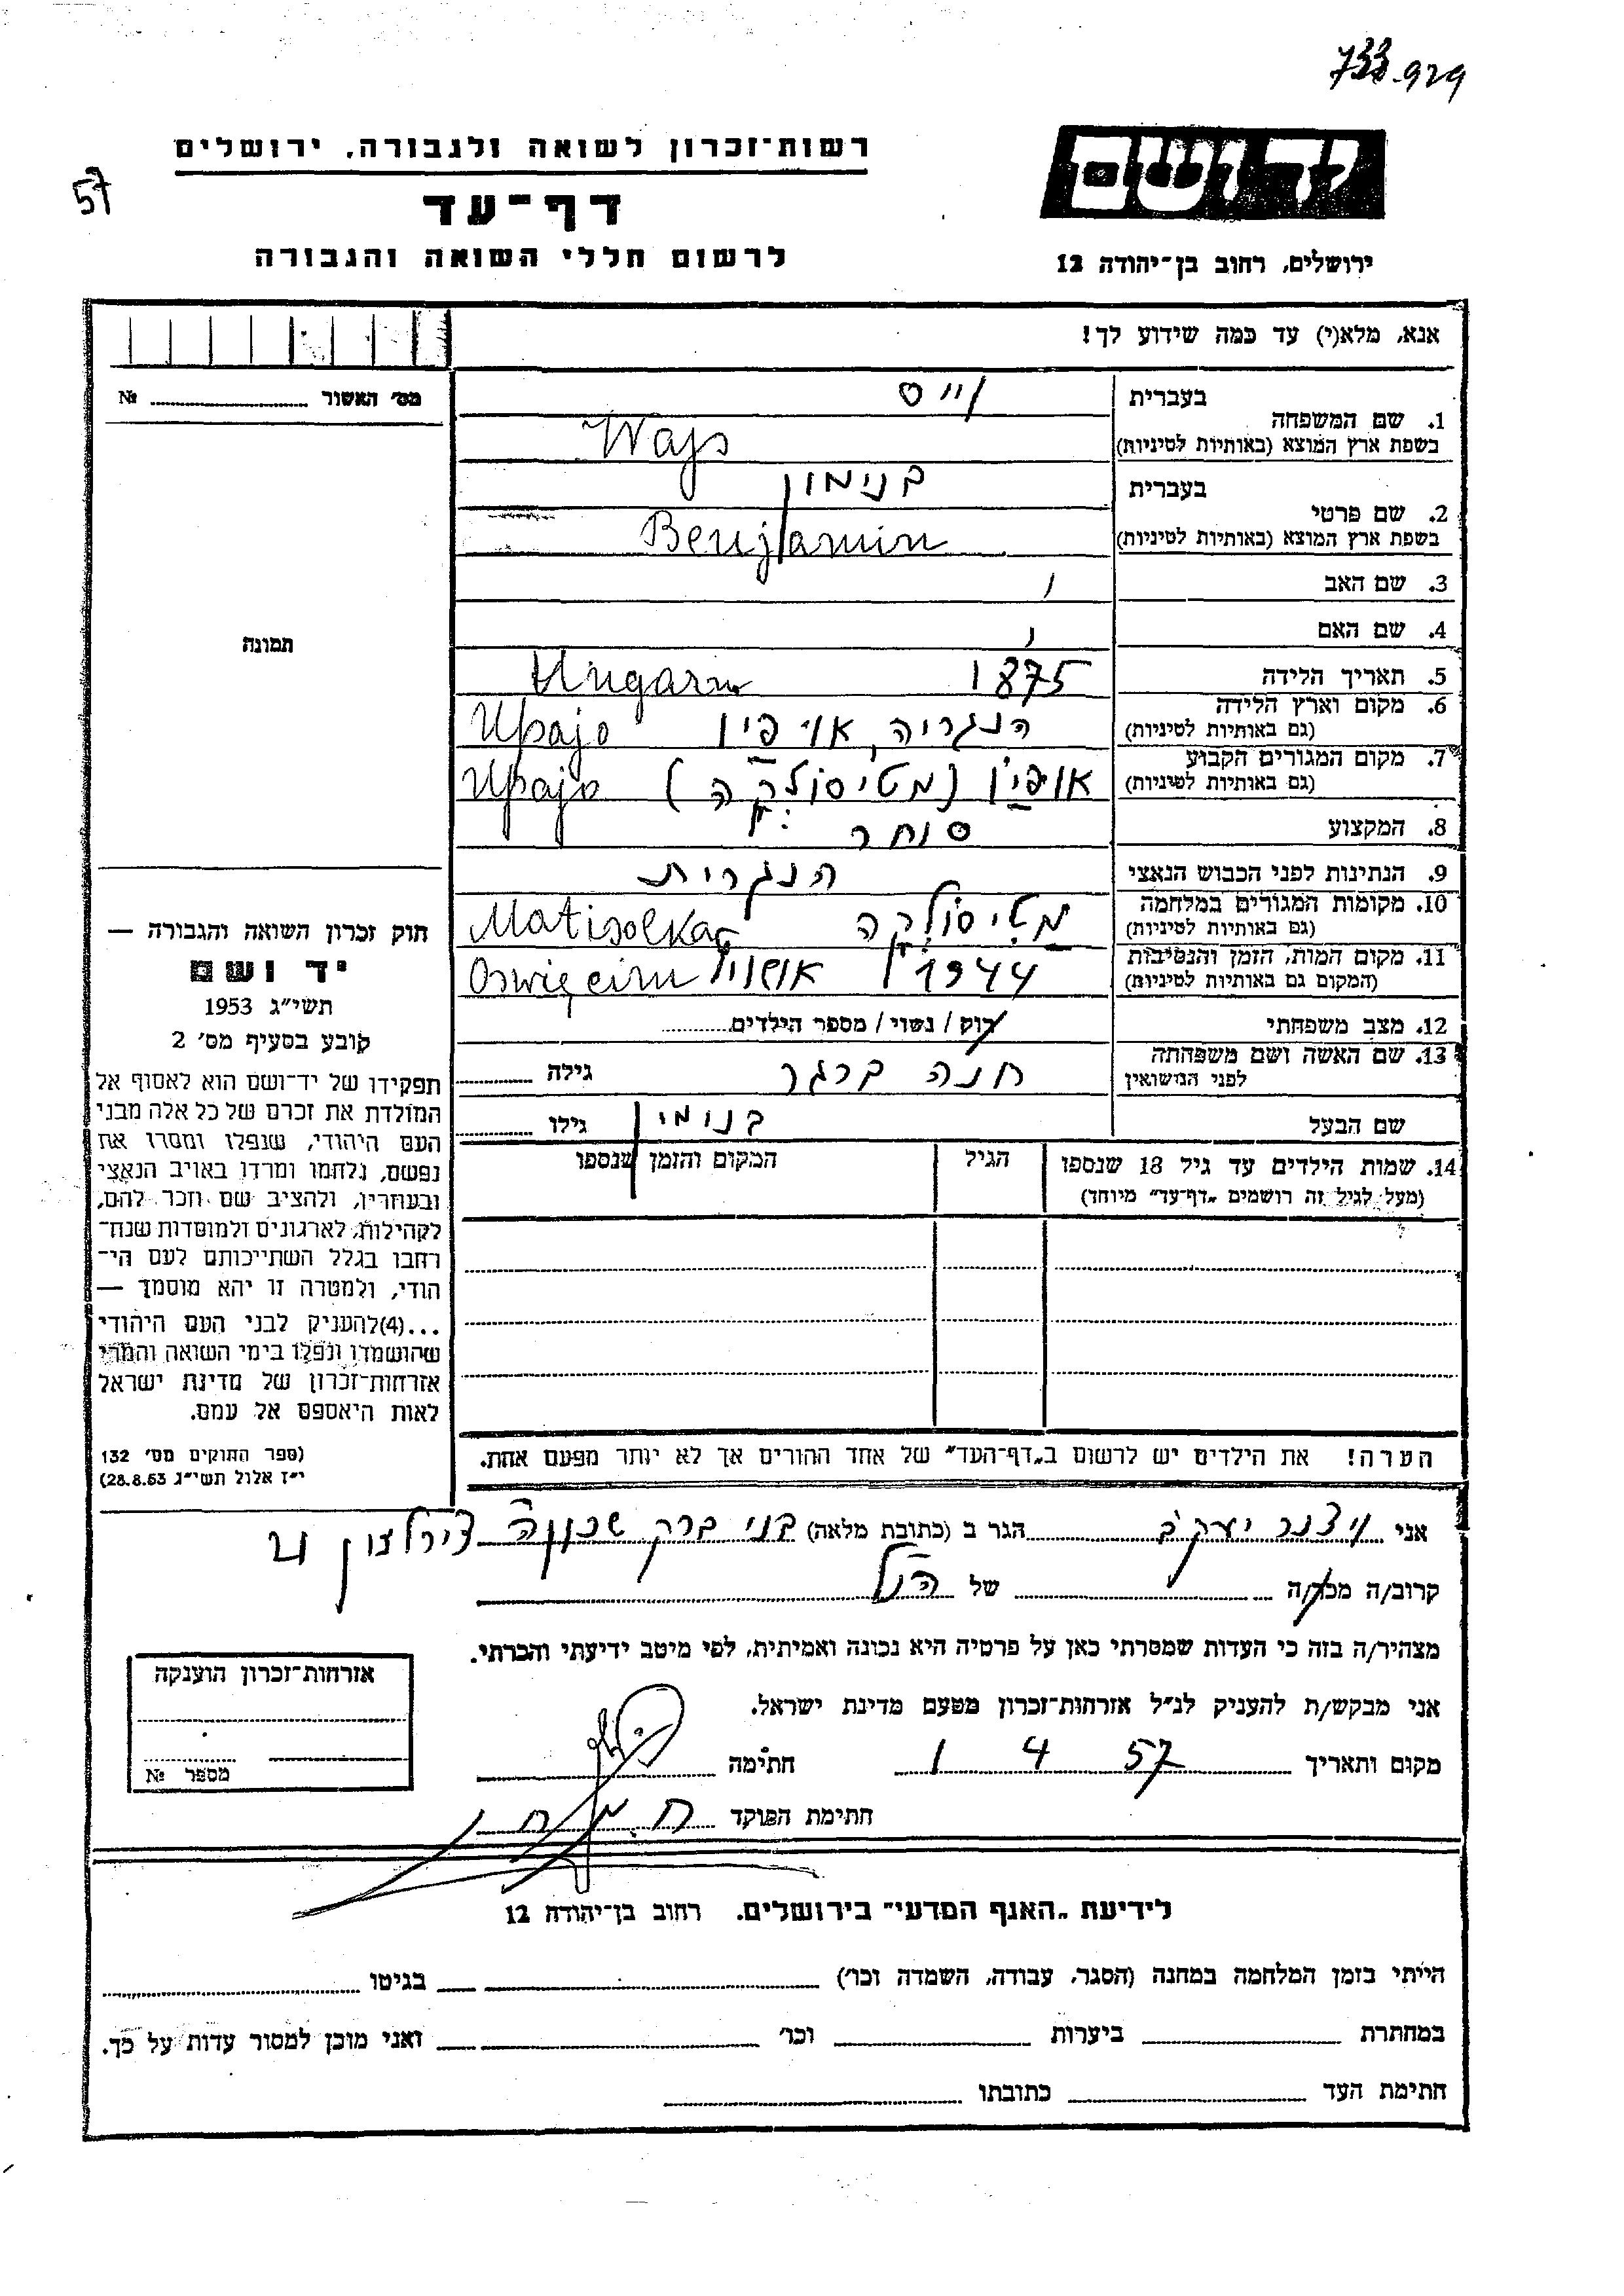 733.929
רשות־זכרון לשואה ולגבורה, ירושלים
יד ושם
57
דף־עד
לרשום חללי השואה והגבורה
ירושלים, רחוב בן־יהודה 12
אנא, מלא(י) עד כמה שידוע לך!
מס' האשור № 
1. שם המשפחה
בעברית
וייס
בשפת ארץ המוצא (באותיות לטיניות)
Wajs
2. שם פרטי
בעברית
בנימון
בשפת ארץ המוצא (באותיות לטיניות)
Benjamin
3. שם האב
4. שם האם
תמונה
5. תאריך הלידה 1875 Ungarn
6. מקום וארץ הלידה
(גם באותיות לטיניות)
הנגריה, אוי פין
7. מקום המגורים הקבוע
(גם באותיות לטיניות)
8. המקצוע סוחר
9. הנתינות לפני הכבוש הנאצי הנגרית
10. מקומות המגורים במלחמה
(גם באותיות לטיניות)
מטיסולקה Matisolka
11. מקום המות, הזמן והנסיבות
(המקום גם באותיות לטיניות)
1944 Oswięcim
12. מצב משפחתי רוק / נשוי / מספר הילדים
13. שם האשה ושם משפחתה
לפני הנישואין
חנה ברגר גילה
שם הבעל בנומין גילו
14. שמות הילדים עד גיל 18 שנספו
(מעל לגיל זה רושמים „דף־עד" מיוחד)
הגיל
המקום והזמן שנספו
חוק זכרון השואה והגבורה —
יד ושם
תשי"ג 1953
קובע בסעיף מס' 2
תפקידו של יד־ושם הוא לאסוף אל
המולדת את זכרם של כל אלה מבני
העם היהודי, שנפלו ומסרו את
נפשם, נלחמו ומרדו באויב הנאצי
ובעוזריו, ולהציב שם וזכר להם,
לקהילות, לארגונים ולמוסדות שנח־
רחבו בגלל השתייכותם לעם הי־
הודי, ולמטרה זו יהא מוסמך —
...(4)להעניק לבני העם היהודי
שהושמדו ונפלו בימי השואה והמרי
אזרחות־זכרון של מדינת ישראל
לאות היאספם אל עמם.
(ספר החוקים מס' 132
י"ז אלול תשי"ג 28.8.53)
הערה! את הילדים יש לרשום ב„דף־העד" של אחד ההורים אך לא יותר מפעם אחת.
אני ויצנר יעקב הגר ב (כתובת מלאה) בני ברק שכונה
קרוב/ה מכר/ה של הנ"ל
מצהיר/ה בזה כי העדות שמסרתי כאן על פרטיה היא נכונה ואמיתית, לפי מיטב ידיעתי והכרתי.
אני מבקש/ת להעניק לנ"ל אזרחות־זכרון מטעם מדינת ישראל.
מקום ותאריך 57 4 1 חתימה
חתימת הפוקד
אזרחות־זכרון הוענקה
מספר №
לידיעת „האגף המדעי" בירושלים. רחוב בן־יהודה 12
הייתי בזמן המלחמה במחנה (הסגר, עבודה, השמדה וכו') בגיטו
במחתרת ביערות וכו' ואני מוכן למסור עדות על כך.
חתימת העד כתובתו